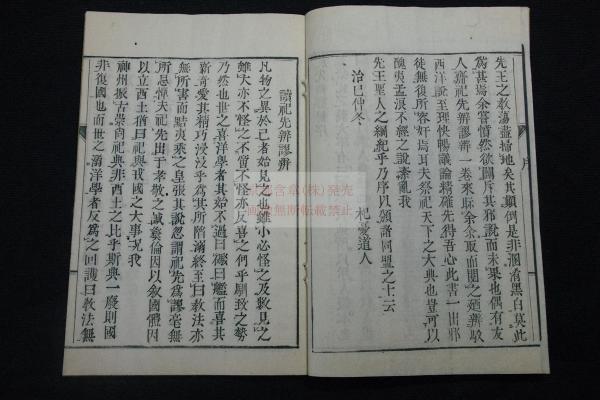 先王之教蕩盡掃地矣其顛倒是非溷淆黑白莫此
爲甚焉余嘗憤然欲闢斥其邪說而未果也偶有友
人齎祀先辨謬辨一卷來眎余余取而閱之廻辨駁
西洋說至理快暢議論精確先得吾心此書一出邪
徒無復所容奸焉耳夫祭祀天下之大典也豈可以
醜夷孟浪不經之說紊亂我
先王聖人之綱紀乎乃序以頒諸同盟之士云
治己仲冬
杞憂道人
讀祀先辨謬辨
凡物之異於己者始見之也雖小必怪之及數見之
雖大亦不怪之不啻不怪亦反喜之何乎馴致之勢
乃然也世之喜洋學者其始不過曰礮曰艦而喜其
新奇愛其精巧浸浸乎爲其所陷溺終至曰教法亦
無所害而黠夷乘之皇張其說忽謂祀先爲謬毫無
所忌憚夫祀先出于孝敬之誠彝倫因以敘國體因
以立西土猶曰祀與戎國之大事況我
神州振古崇尚祀典非西土之比乎斯典一廢則國
非復國也而世之溺洋學者反爲之回護曰教法無